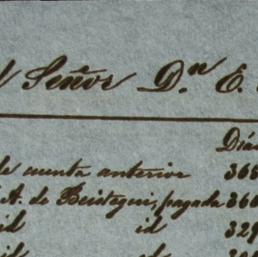 Señor Dn. E.
Días
de cuenta anterior 365
A. de Beistegui, pagada 360
id id 329